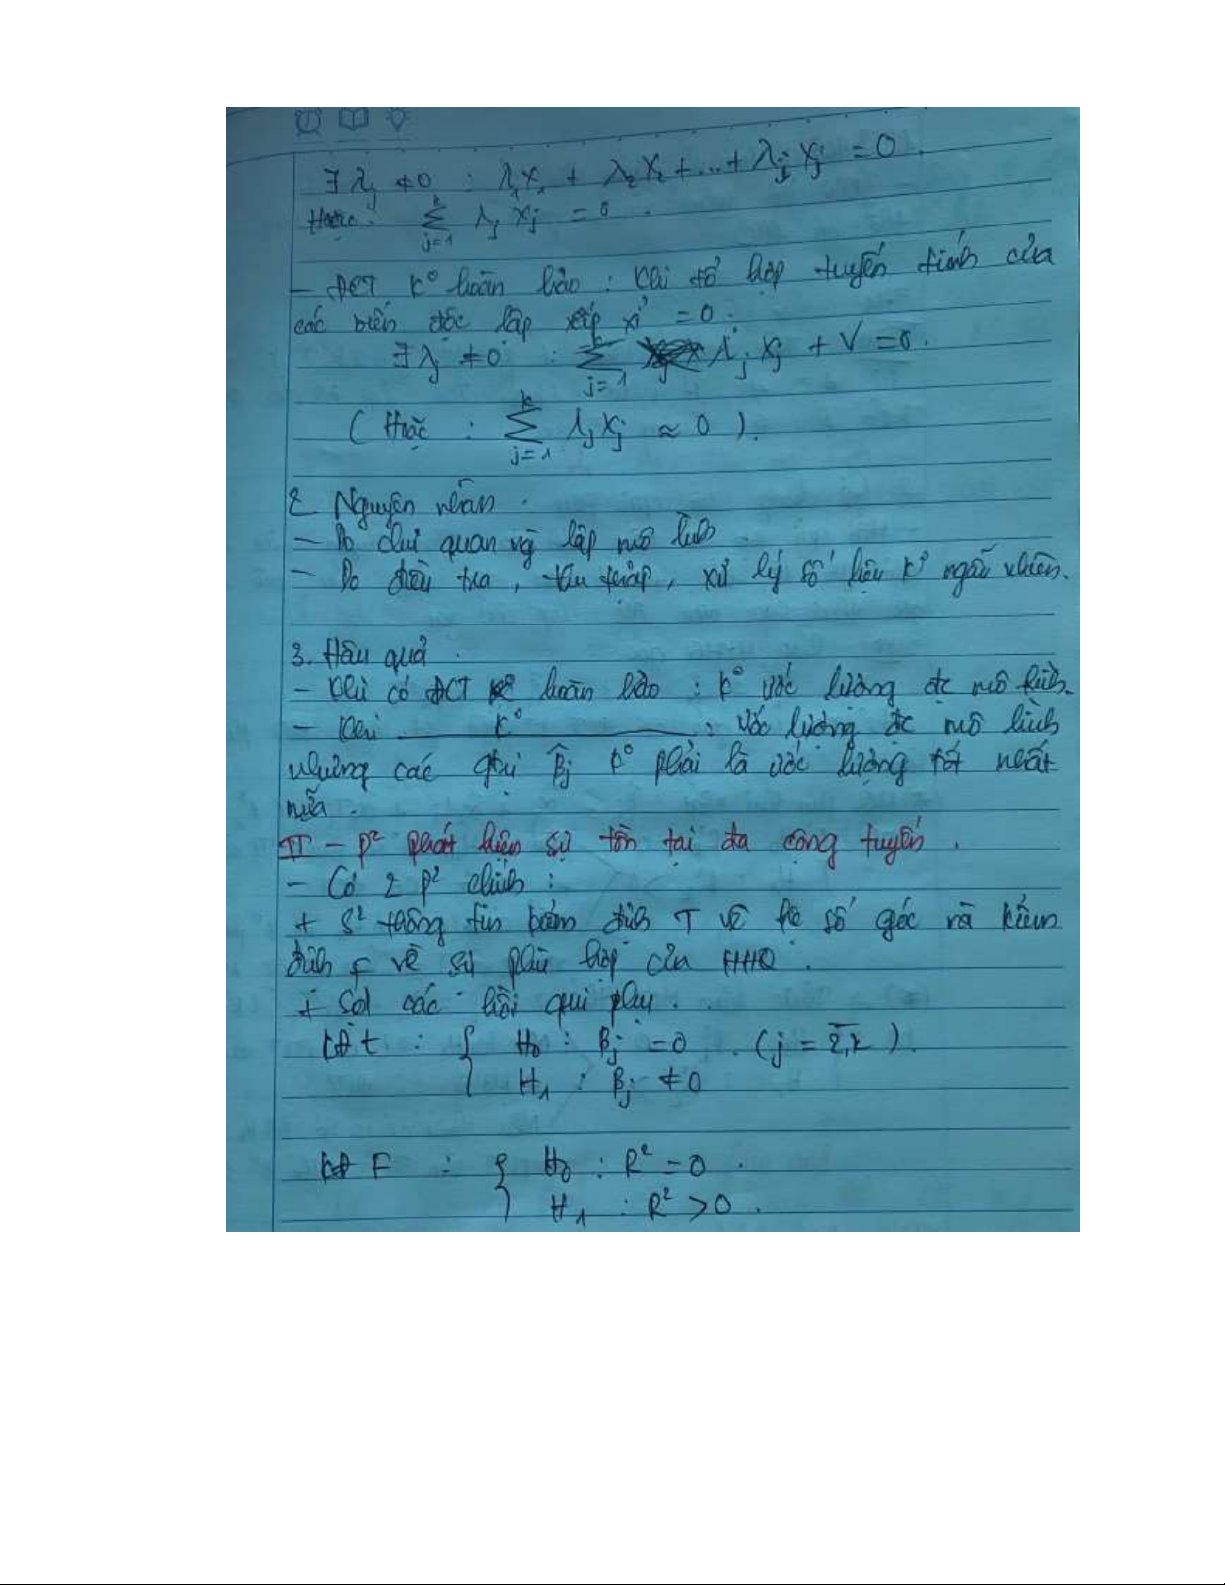 ∃ λj ≠ 0 : λ1X1 + λ2X2 + ... + λjXj = 0
Hoặc : Σ(j=1→k) λj Xj = 0 .
– ĐCT k° hoàn hảo : Khi tổ hợp tuyến tính của
các biến độc lập xấp xỉ = 0 .
∃ λj ≠ 0 : Σ(j=1→k) λj Xj + V = 0 .
( Hoặc : Σ(j=1→k) λj Xj ≈ 0 ) .
2 Nguyên nhân .
– Do chủ quan về lập mô hình .
– Do điều tra , thu thập , xử lý số liệu k° ngẫu nhiên .
3. Hậu quả .
– Khi có ĐCT hoàn hảo : k° ước lượng đc mô hình .
– Khi ——— k° ——— : Ước lượng đc mô hình
nhưng các β̂j k° phải là ước lượng tốt nhất
nữa .
II – P² phát hiện sự tồn tại đa cộng tuyến .
– Có 2 P² chính :
+ S² thông tin kiểm định T về hệ số góc và kiểm
định F về sự phù hợp của HHQ .
+ Sd các hồi qui phụ .
KĐ t : { H0 : βj = 0 . ( j = 2,k ) .
H1 : βj ≠ 0
KĐ F : { H0 : R² = 0 .
H1 : R² > 0 .